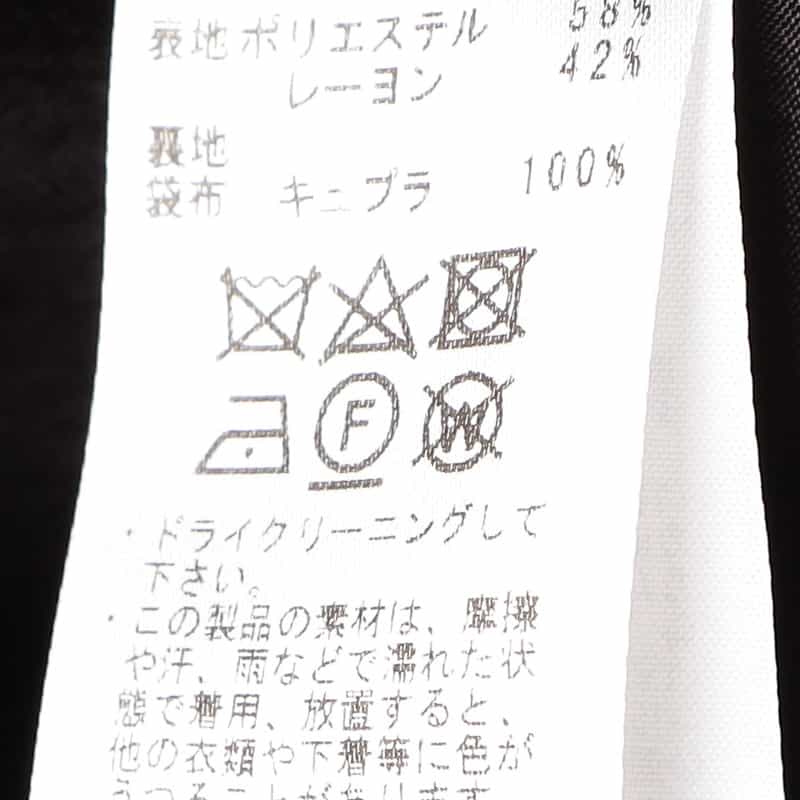 表地 ポリエステル 58%
レーヨン 42%
裏地
袋布 キュプラ 100%
F
W
・ドライクリーニングして
下さい。
・この製品の素材は、摩擦
や汗、雨などで濡れた状
態で着用、放置すると、
他の衣類や下着等に色が
うつることがあります